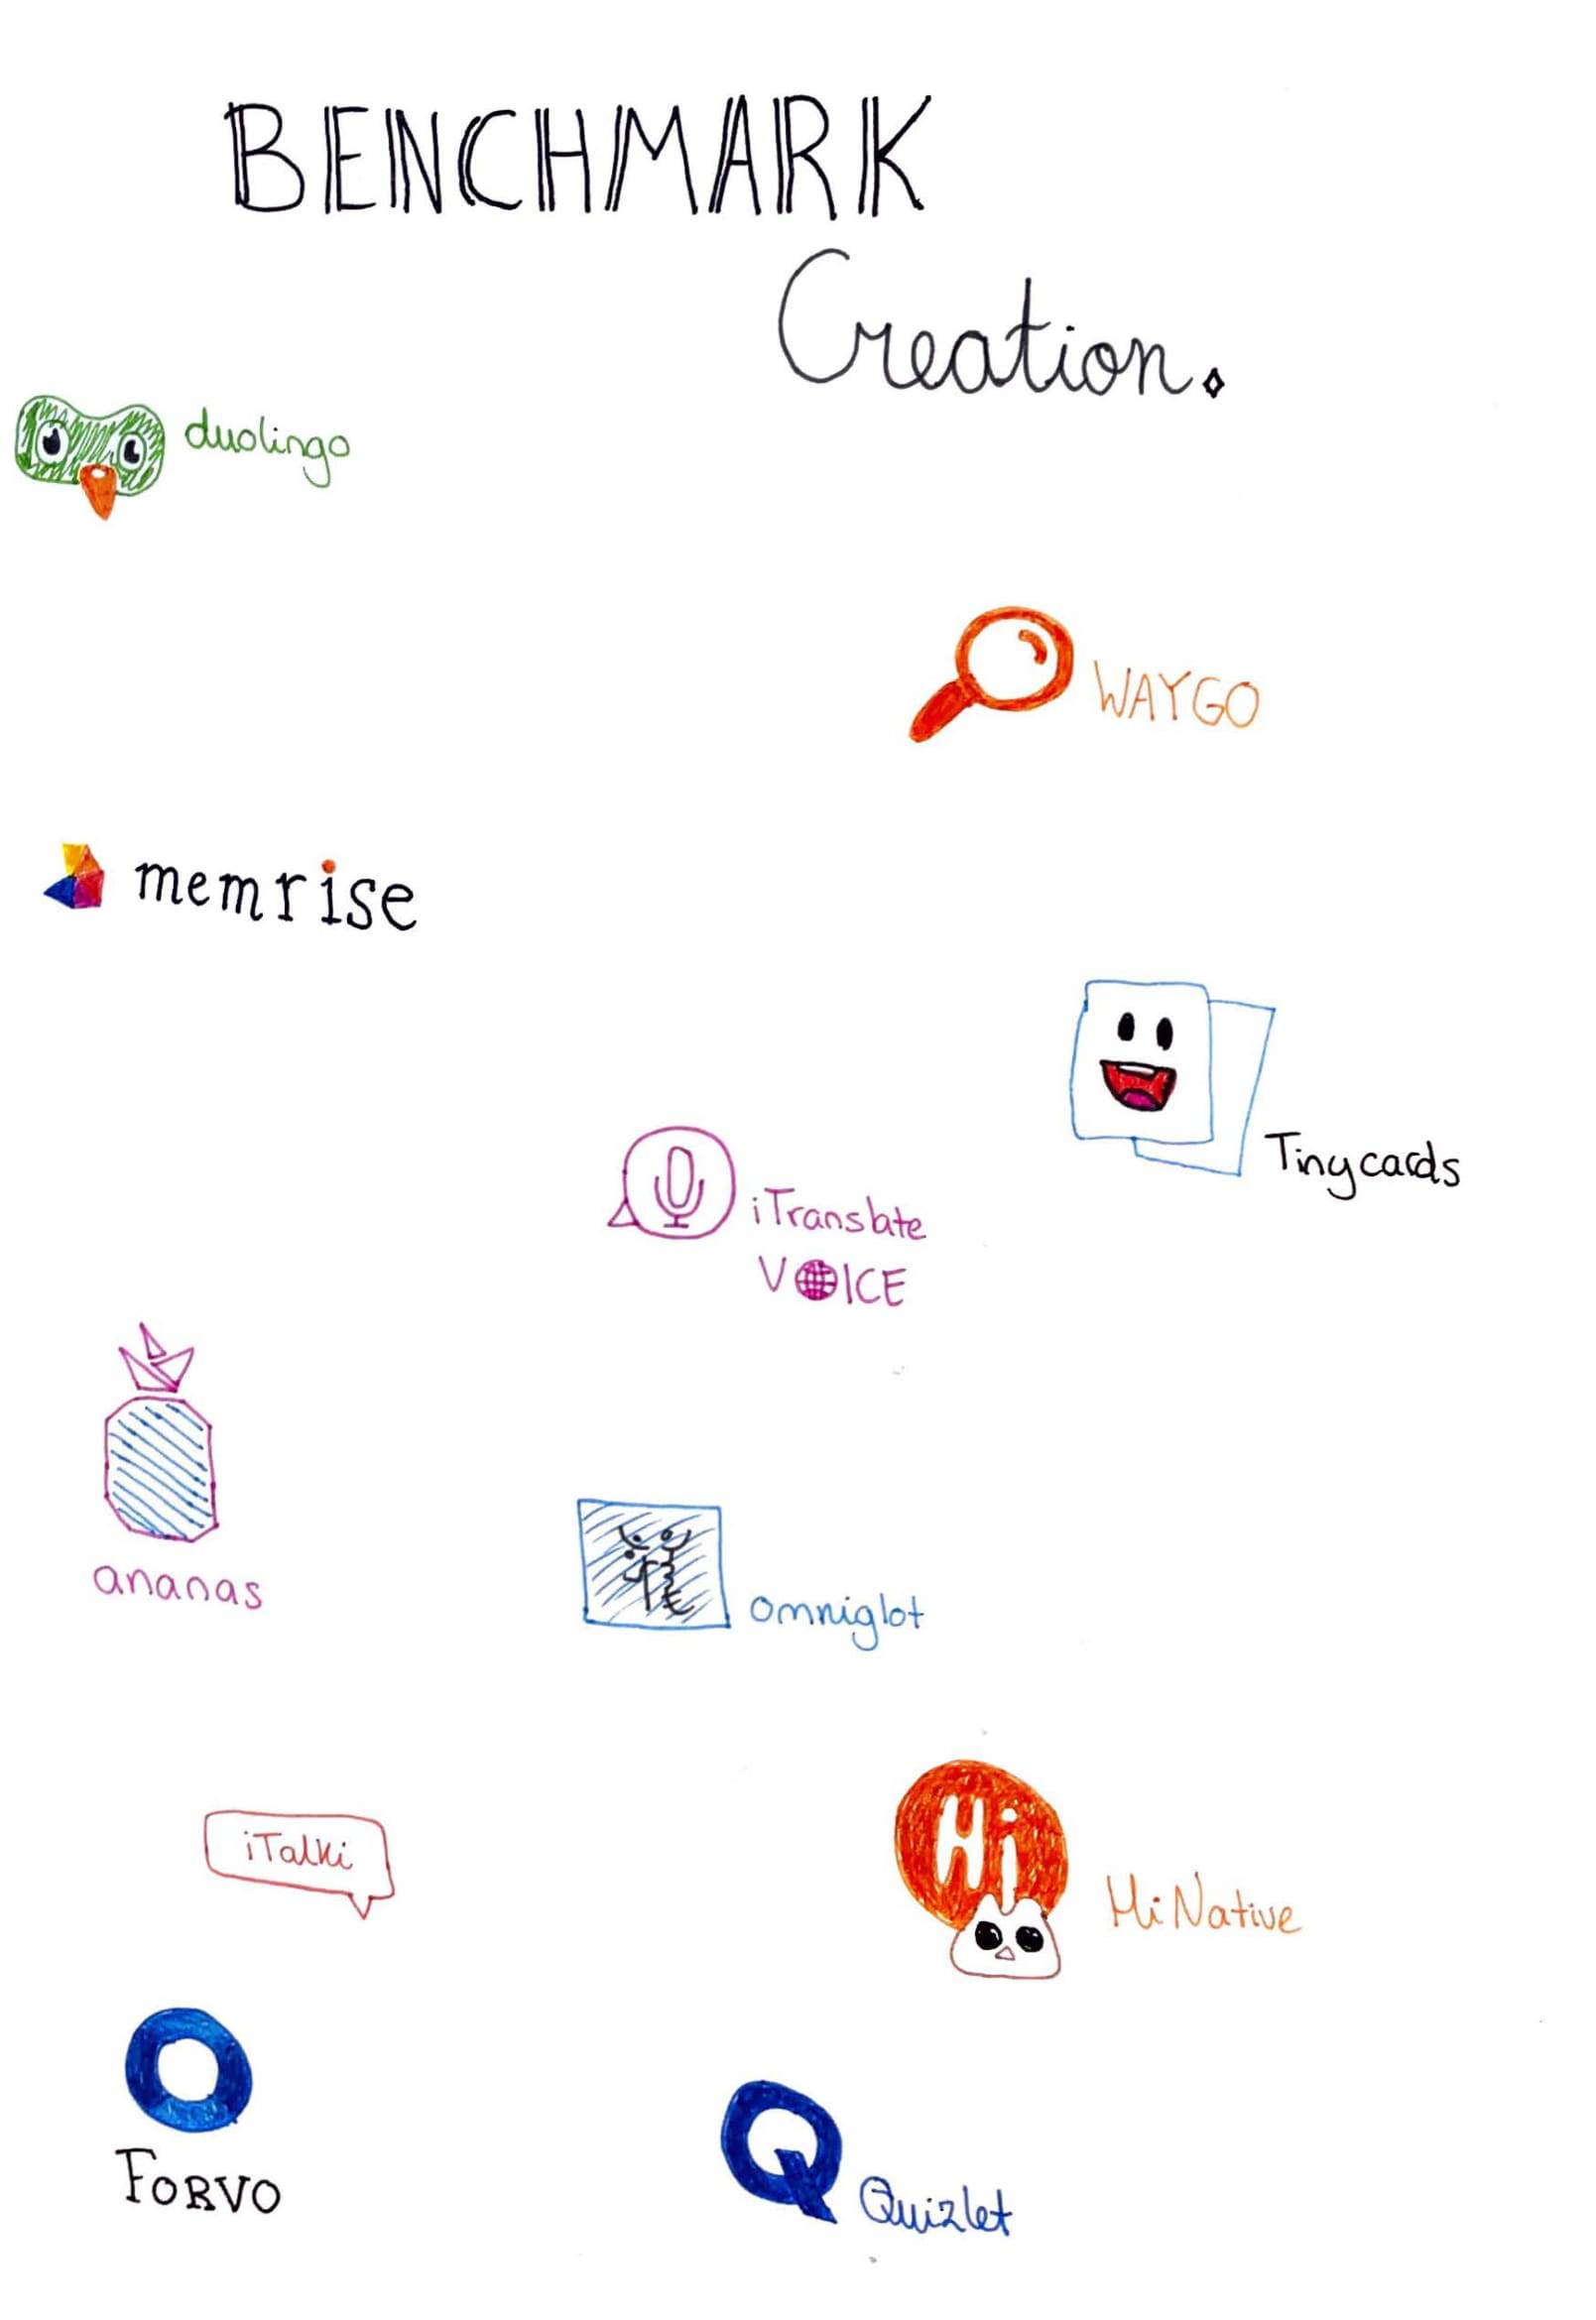 BENCHMARK
Creation.
duolingo
WAYGO
memrise
Tinycards
iTranslate
VOICE
ananas
omniglot
iTalki
Hi
HiNative
FORVO
Q
Quizlet